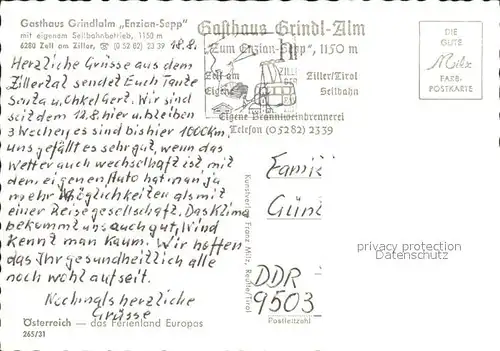 Gasthaus Grindlalm „Enzian-Sepp"
mit eigenem Seilbahnbetrieb, 1150 m
6280 Zell am Ziller, ☎ (0 52 82) 23 39
18.8.
Herzliche Grüsse aus dem
Zillertal sendet Euch Tante
Santa u, Onkel Gert. Wir sind
seit dem 12.8. hier u, bleiben
3 Wochen, es sind bis hier 1000km.
uns gefällt es sehr gut, wenn das
Wetter auch wechselhaft ist mit
dem eigenen Auto hat man ja
mehr Möglichkeiten als mit
einer Reisegesellschaft. Das Klima
bekommt uns auch gut, Wind
kennt man kaum. Wir hoffen
das Ihr gesundheitlich alle
noch wohl auf seit.
Nochmals herzliche
Grüsse
Österreich — das Ferienland Europas
265/31
Gasthaus Grindl-Alm
„Zum Enzian-Sepp", 1150 m
Zell am
Ziller/Tirol
Eigene
Seilbahn
Eigene Branntweinbrennerei
Telefon (05282) 2339
Kunstverlag Franz Milz, Reutte/Tirol
DIE
GUTE
Milz
FARB-
POSTKARTE
Famili
Günt
DDR
9503
Postleitzahl
privacy protection
Datenschutz